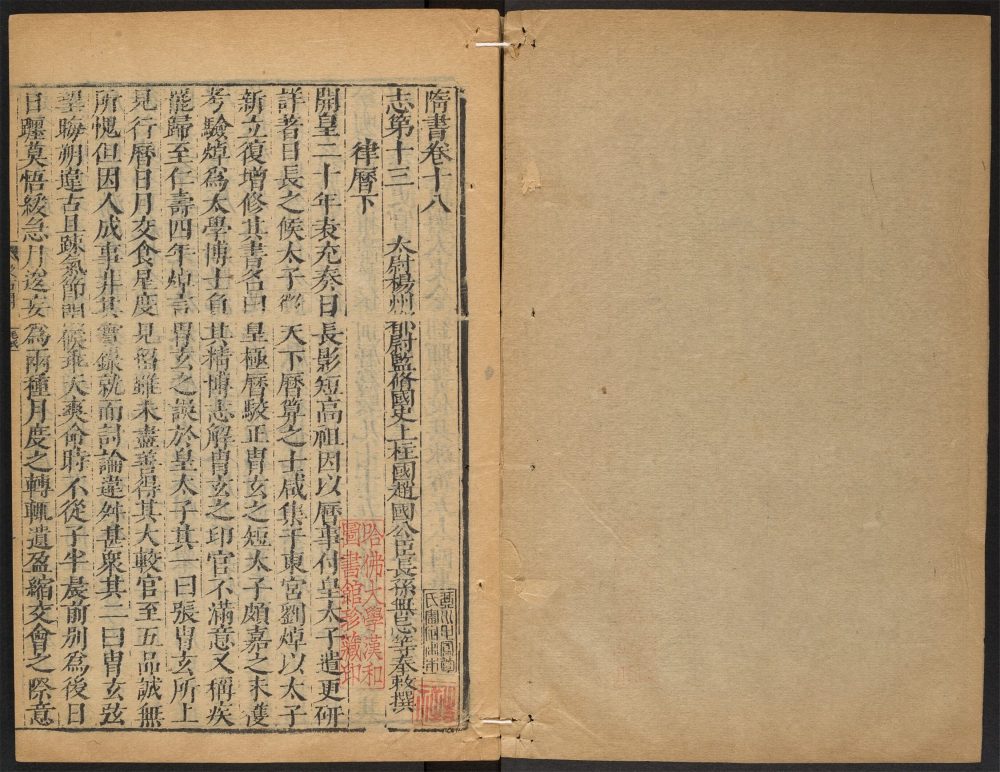 隋書卷十八
志第十三 太尉楊州都尉監修國史上柱國趙國公臣長孫無忌等奉敕撰
律曆下
開皇二十年袁充奏日長影短高祖因以曆事付皇太子遣更研
詳著日長之候太子徵天下曆算之士咸集于東宮劉焯以太子
新立復增修其書名曰皇極曆駮正胄玄之短太子頗嘉之未獲
考驗焯爲太學博士負其精博志解胄玄之印官不滿意又稱疾
罷歸至仁壽四年焯言胄玄之誤於皇太子其一曰張胄玄所上
見行曆日月交食星度見留雖未盡善得其大較官至五品誠無
所愧但因人成事非其實錄就而討論違舛甚衆其二曰胄玄弦
望晦朔違古且疎氣節閏候乖天爽命時不從子半晨前別爲後日
日躔莫悟緩急月逡妄爲兩種月度之轉輒遺盈縮交會之際意
哈佛大學漢和
圖書館珍藏印